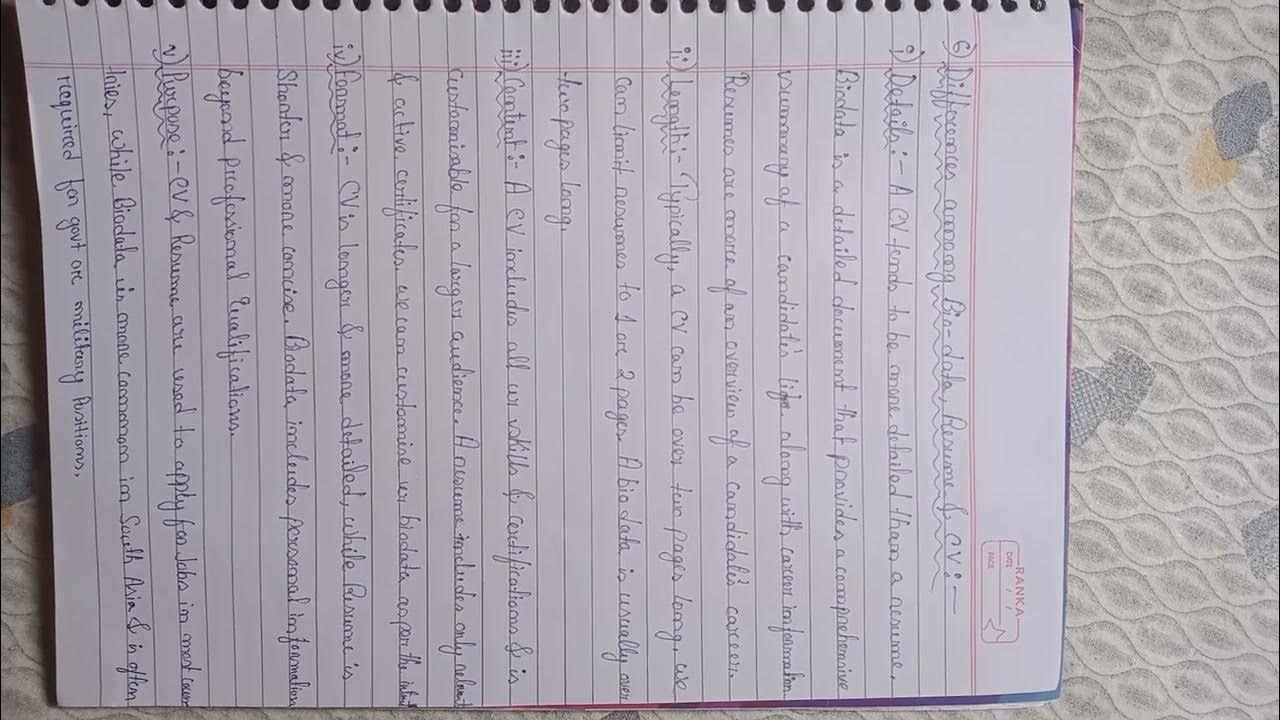 RANKA
DATE / /
PAGE
6) Differences among Bio-data, Resume & CV:-
i) Details:- A CV tends to be more detailed than a resume.
Biodata is a detailed document that provides a comprehensive
summary of a candidate's life along with career information.
Resumes are more of an overview of a candidate's career.
ii) Length:- Typically, a CV can be over two pages long, we
can limit resumes to 1 or 2 pages. A biodata is usually over
two pages long.
iii) Content:- A CV includes all ur skills & certifications & is
customizable for a larger audience. A resume includes only relevant
& active certificates, we can customise ur biodata as per the
iv) Format:- CV is longer & more detailed, while Resume is
Shorter & more concise. Biodata includes personal information
beyond professional Qualifications.
v) Purpose:- CV & Resume are used to apply for Jobs in most coun
tries, while Biodata is more common in South Asia & is often
required for govt or military Positions.